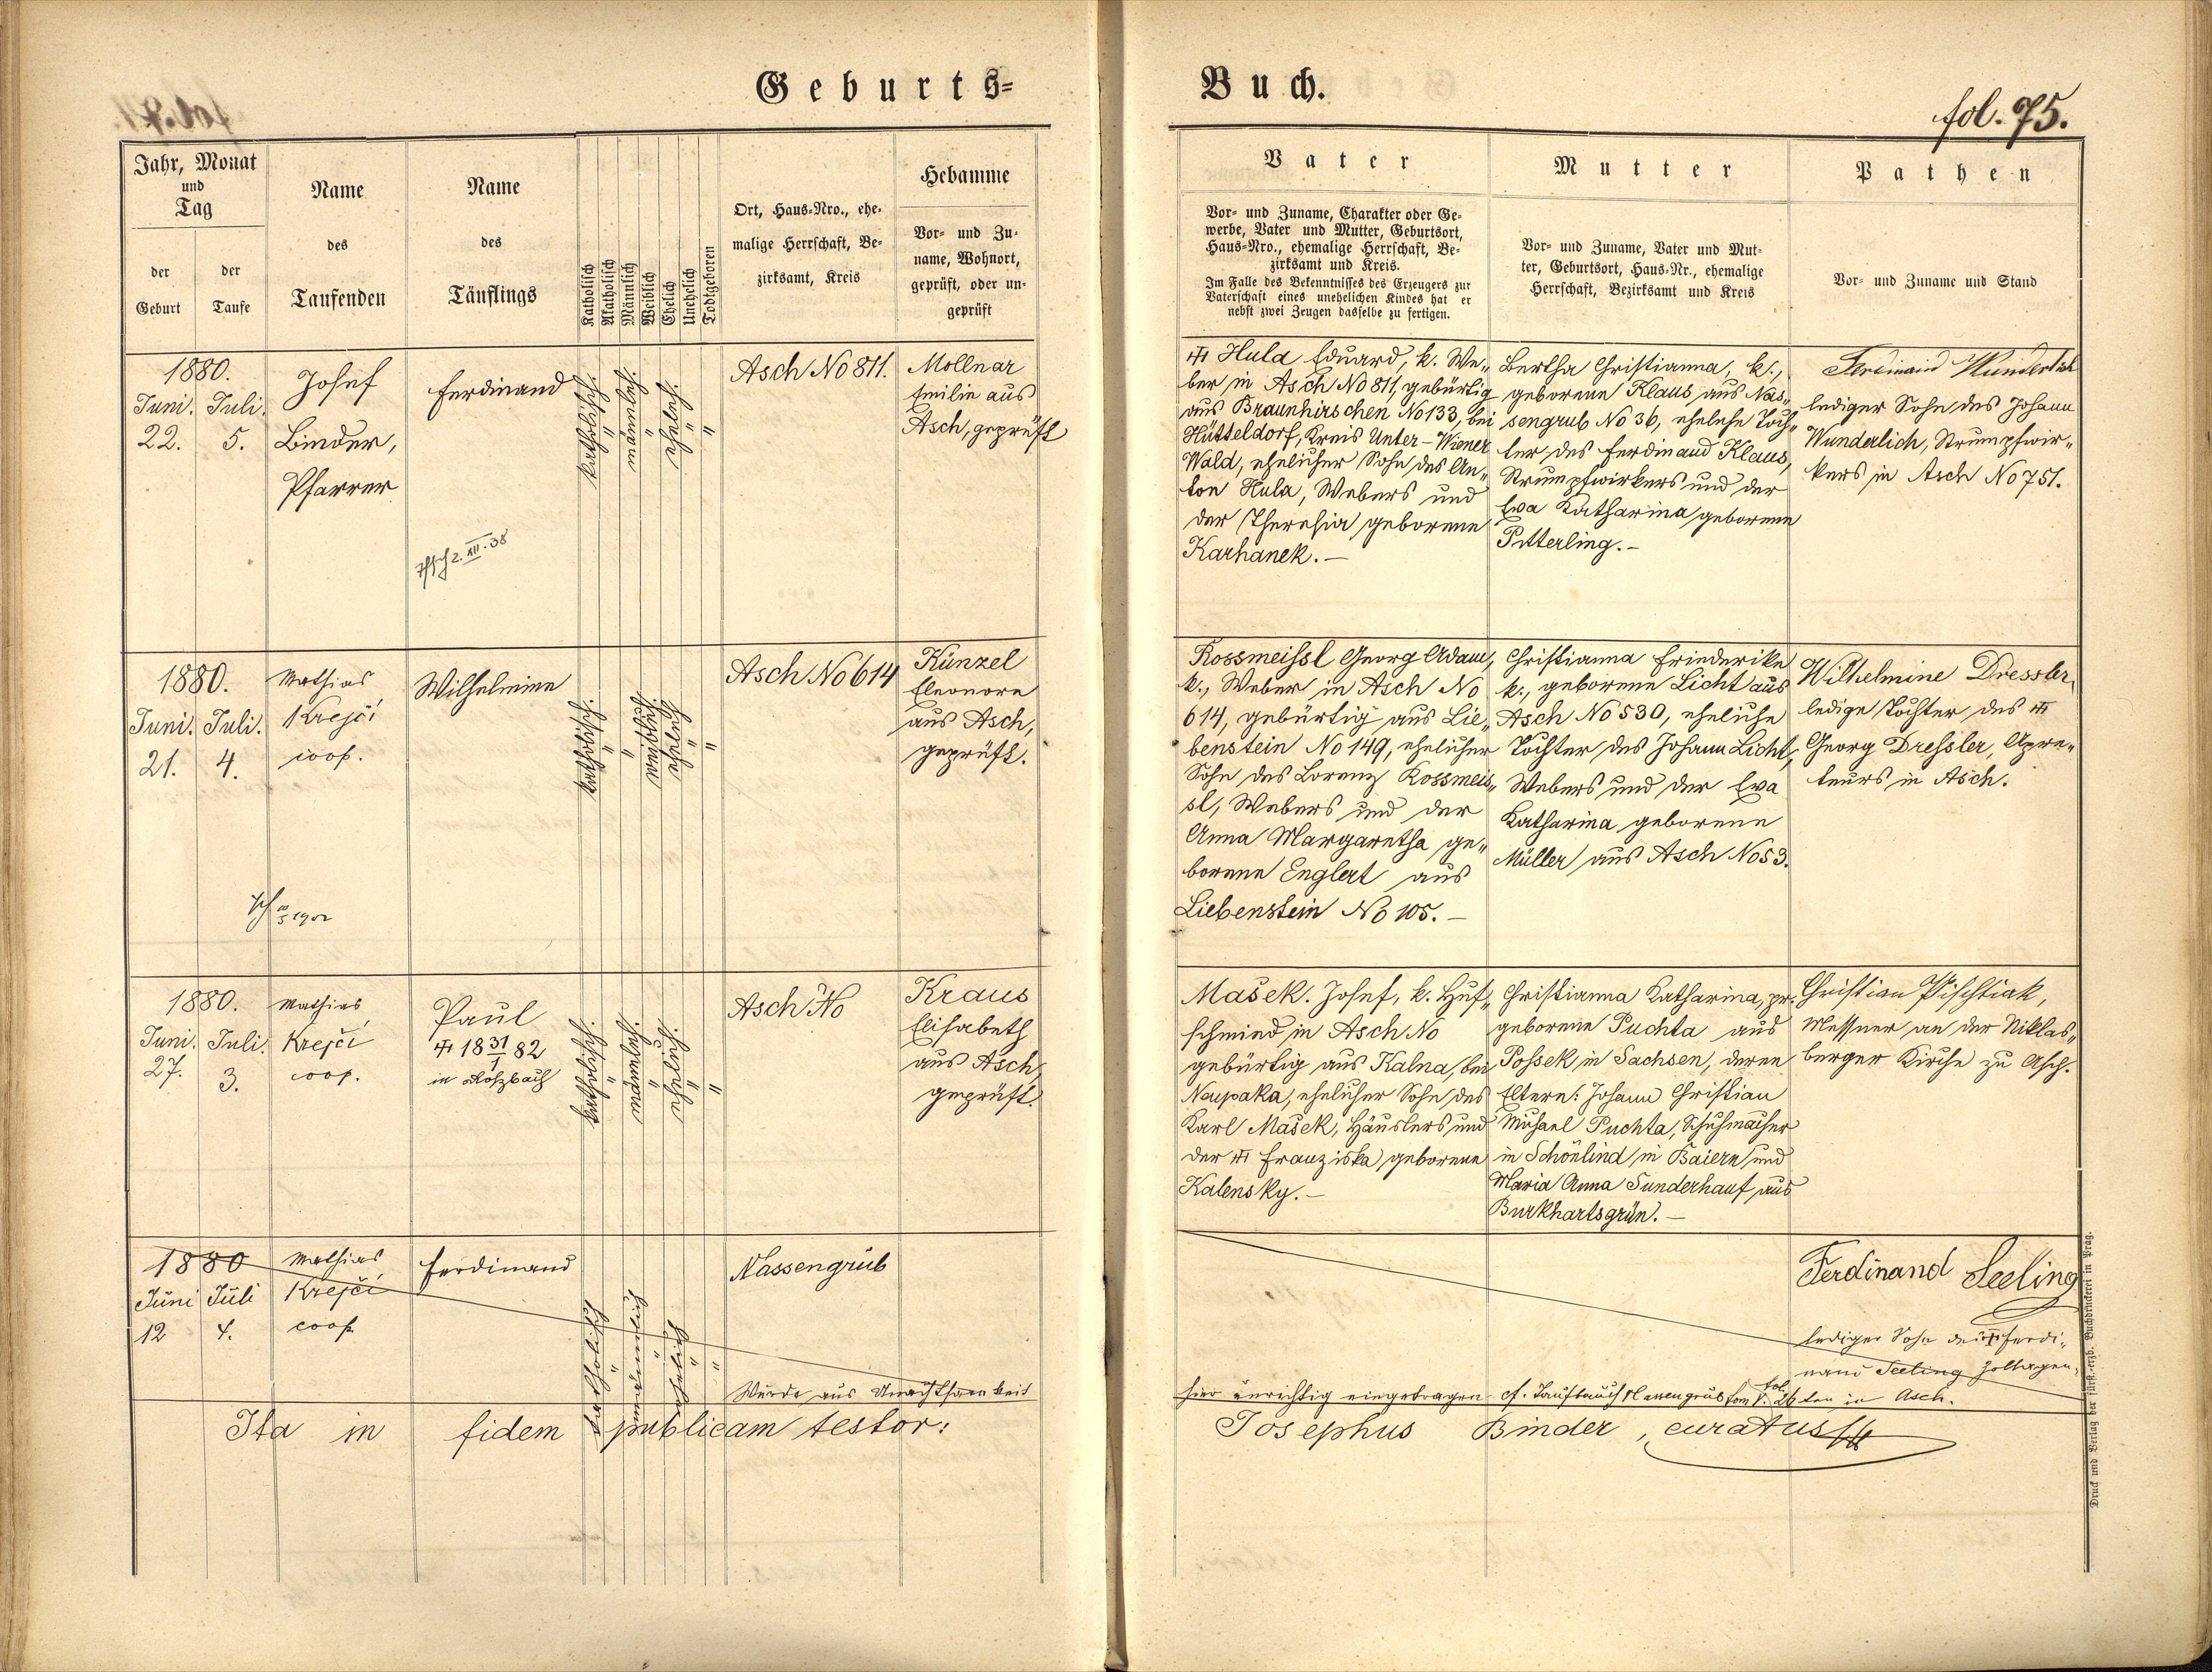 Geburts=
Buch.
fol. 75.
Jahr, Monat
und
Tag
der
Geburt
der
Taufe
Name
des
Taufenden
Name
des
Täuflings
Katholisch
Akatholisch
Männlich
Weiblich
Ehelich
Unehelich
Todtgeboren
Ort, Haus-Nro., ehe-
malige Herrschaft, Be-
zirksamt, Kreis
Hebamme
Vor- und Zu-
name, Wohnort,
geprüft, oder un-
geprüft
Vater
Vor- und Zuname, Charakter oder Ge-
werbe, Vater und Mutter, Geburtsort,
Haus-Nro., ehemalige Herrschaft, Be-
zirksamt und Kreis.
Im Falle des Bekenntnisses des Erzeugers zur
Vaterschaft eines unehelichen Kindes hat er
nebst zwei Zeugen dasselbe zu fertigen.
Mutter
Vor- und Zuname, Vater und Mut-
ter, Geburtsort, Haus-Nr., ehemalige
Herrschaft, Bezirksamt und Kreis
Pathen
Vor- und Zuname und Stand
1880.
Juni.
22.
Juli.
5.
Josef
Binder,
Pfarrer
Ferdinand
2. XII. 38
katholisch.
"
männlich.
"
ehelich.
"
"
Asch No 811.
Mollnar
Emilie aus
Asch, geprüft
Hula Eduard, k. We-
ber in Asch No 811, gebürtig
aus Braunhirschen No 133, bei
Hütteldorf, Kreis Unter-Wiener
Wald, ehelicher Sohn des An-
ton Hula, Webers und
der Theresia geborene
Karhanek. —
Bertha Christianna, k.,
geborene Klaus aus Nas-
sengrub No 36, eheliche Toch-
ter des Ferdinand Klaus,
Strumpfwirkers und der
Eva Katharina geborene
Pitterling. —
Ferdinand Wunderlich
lediger Sohn des Johann
Wunderlich, Strumpfwir-
kers in Asch No 751.
1880.
Juni.
21.
Juli.
4.
Mathias
Krejčí
coop.
Wilhelmine
1902
katholisch.
"
"
weiblich.
ehelich
"
"
Asch No 614
Künzel
Eleonore
aus Asch,
geprüft.
Rossmeissl Georg Adam,
k., Weber in Asch No
614, gebürtig aus Lie-
benstein No 149, ehelicher
Sohn des Lorenz Rossmeis-
sl, Webers und der
Anna Margaretha ge-
borene Englert aus
Liebenstein No 105. —
Christianna Friederike
k., geborene Licht aus
Asch No 530, eheliche
Tochter des Johann Licht,
Webers und der Eva
Katharina geborene
Müller aus Asch No 53.
Wilhelmine Dressler
ledige Tochter des
Georg Dressler, Apre-
teurs in Asch.
1880.
Juni.
27.
Juli.
3.
Mathias
Krejčí
coop.
Paul
1831/1 82
in Roßbach
katholisch.
"
männlich.
"
ehelich.
"
"
Asch No
Kraus
Elisabeth
aus Asch
geprüft.
Mašek. Josef, k. Huf-
schmied in Asch No
gebürtig aus Kalna, bei
Neupaka, ehelicher Sohn des
Karl Mašek, Häuslers und
der Franziska geborene
Kalensky. —
Christianna Katharina, pr.
geborene Puchta aus
Possek in Sachsen, deren
Eltern: Johann Christian
Michael Puchta, Schuhmacher
in Schönlind in Baiern und
Maria Anna Sunderhauf aus
Burkhartsgrün. —
Christian Pischtiak,
Messner an der Niklas-
berger Kirche zu Asch.
1880
Juni
12
Juli
4.
Mathias
Krejčí
coop.
Ferdinand
katholisch
"
männlich
"
ehelich
"
"
Nassengrub
Wurde aus Unachtsamkeit
hier unrichtig eingetragen cf. Taufbuch Nassengrub fol. 26 in Asch.
Ferdinand Seeling
lediger Sohn des Ferdi-
nand Seeling
Ita in fidem publicam testor:
Josephus Binder, curatus
Druck und Verlag der fürst.-erzb. Buchdruckerei in Prag.